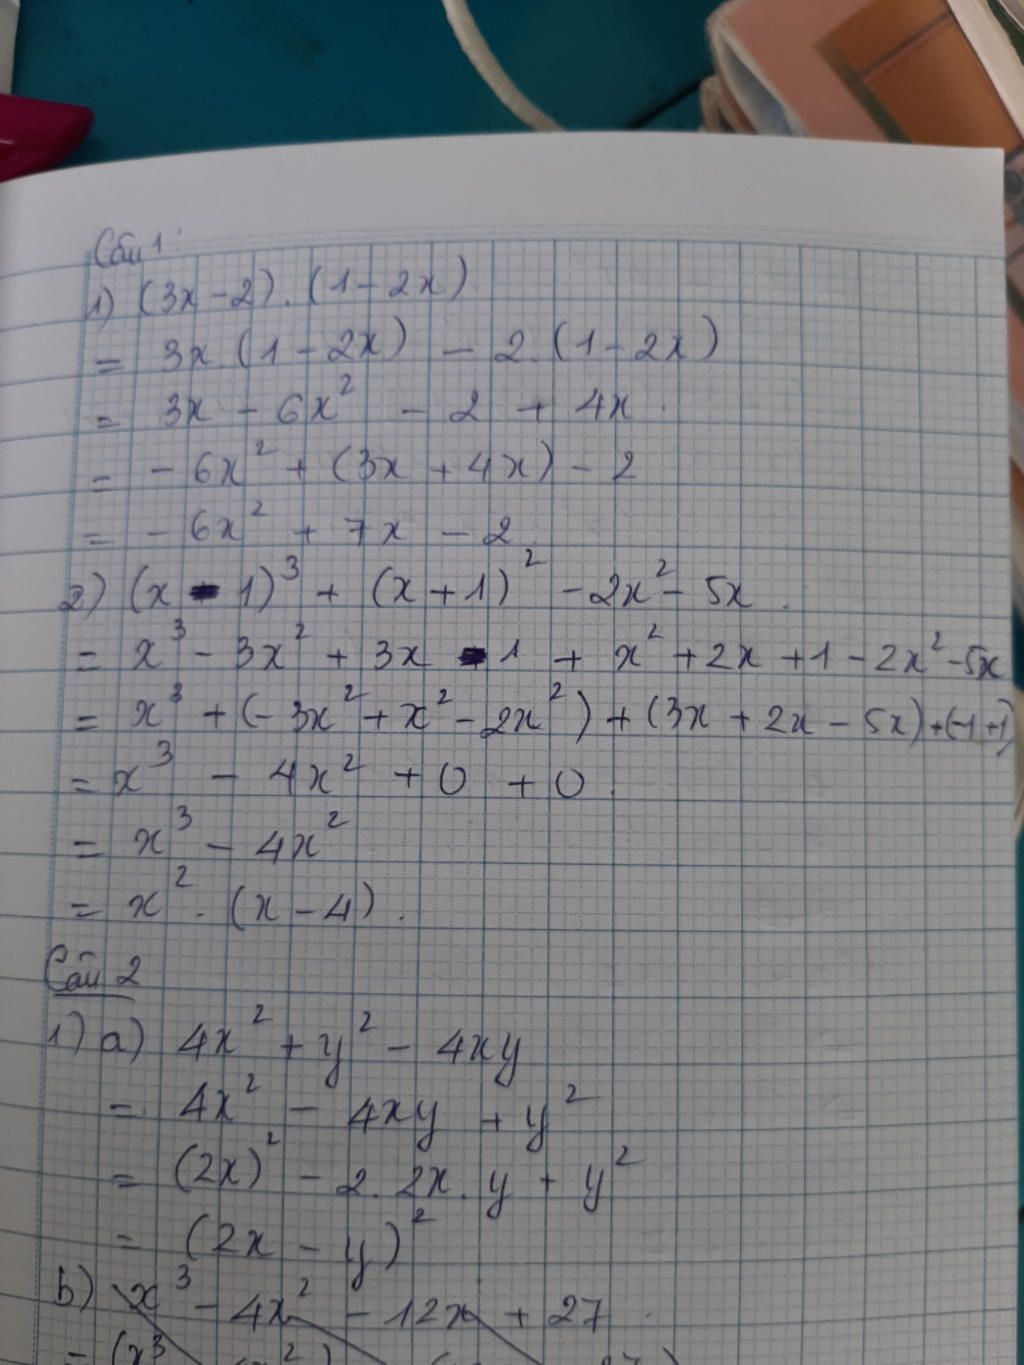 Câu 1:
1) (3x-2).(1-2x)
= 3x.(1-2x) - 2.(1-2x)
= 3x - 6x² - 2 + 4x.
= - 6x² + (3x + 4x) - 2
= - 6x² + 7x - 2.
2) (x - 1)³ + (x+1)² - 2x² - 5x.
= x³ - 3x² + 3x - 1 + x² + 2x + 1 - 2x² - 5x
= x³ + (-3x² + x² - 2x²) + (3x + 2x - 5x) + (-1+1)
= x³ - 4x² + 0 + 0.
= x³ - 4x²
= x².(x-4).
Câu 2
1) a) 4x² + y² - 4xy
= 4x² - 4xy + y²
= (2x)² - 2.2x.y + y²
= (2x - y)²
b) x³ - 4x² - 12x + 27.